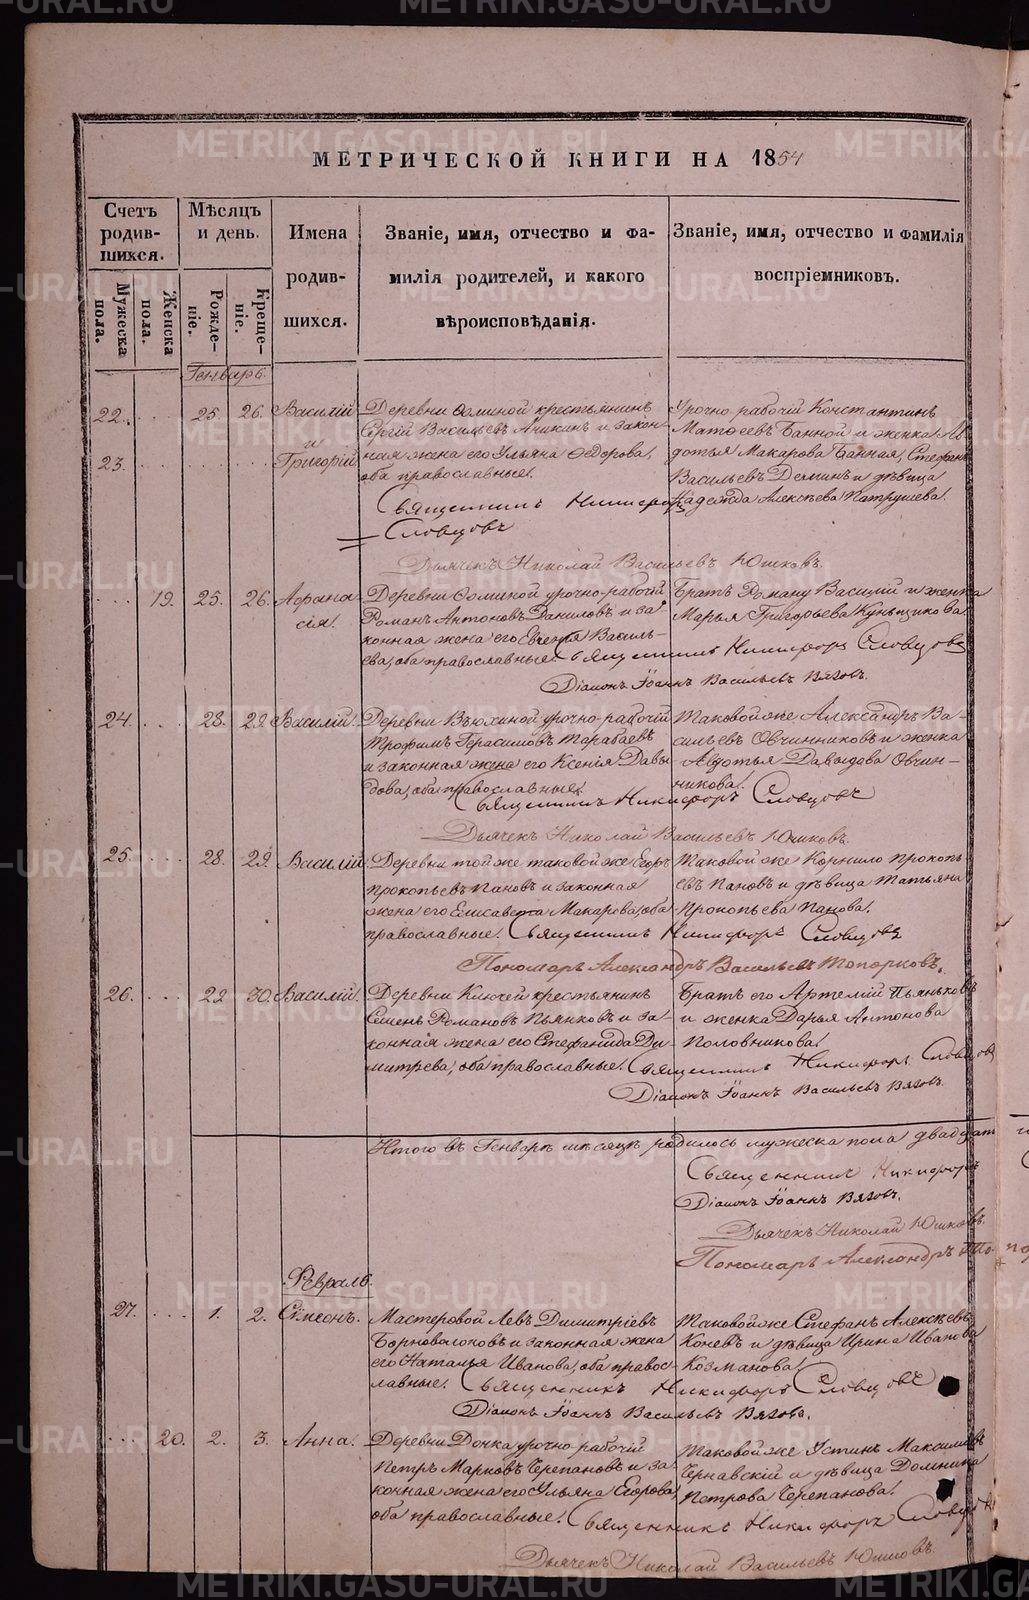 МЕТРИЧЕСКОЙ КНИГИ НА 1854
Счетъ родив-
шихся.
Мужеска пола.
Женска пола.
Мѣсяцъ
и день.
Рожде-
ніе.
Креще-
ніе.
Имена
родив-
шихся.
Званіе, имя, отчество и фа-
милія родителей, и какого
вѣроисповѣданія.
Званіе, имя, отчество и фамилія
воспріемниковъ.
Генварь.
22. 25. 26. Василій
и
23. Григорій
Деревни Осминой крестьянинъ
Сергій Васильевъ Аникинъ и закон-
ная жена его Ульяна Ѳедорова,
оба православные.
Урочно-рабочій Константинъ
Матѳеевъ Банной и женка Ав-
дотья Макарова Банная, Стефанъ
Васильевъ Деминъ и дѣвица
Надежда Алексѣева Патрушева.
Священникъ Никифоръ
Словцовъ
Дьячекъ Николай Васильевъ Юшковъ.
19. 25. 26. Афана-
сія.
Деревни Осминой урочно-рабочій
Романъ Антоновъ Даниловъ и за-
конная жена его Евгенія Василь-
ева, оба православные.
Братъ Роману Василій и женка
Марья Григорьева Кунщикова
Священникъ Никифоръ Словцовъ
Діаконъ Іоаннъ Васильевъ Вязовъ.
24. 28. 29. Василій.
Деревни Вьюхиной урочно-рабочій
Трофимъ Герасимовъ Тарабаевъ
и законная жена его Ксенія Давы-
дова, оба православные.
Таковой же Александръ Ва-
сильевъ Овчинниковъ и женка
Авдотья Давыдова Овчин-
никова.
Священникъ Никифоръ Словцовъ
Дьячекъ Николай Васильевъ Юшковъ.
25. 28. 29. Василій.
Деревни той же таковой же Егоръ
Прокопьевъ Пановъ и законная
жена его Елисавета Макарова, оба
православные.
Таковой же Корнило Прокопь-
евъ Пановъ и дѣвица Татьяна
Прокопьева Панова.
Священникъ Никифоръ Словцовъ
Пономарь Александръ Васильевъ Топорковъ.
26. 29. 30. Василій.
Деревни Ключей крестьянинъ
Семенъ Романовъ Пьянковъ и за-
конная жена его Стефанида Ди-
митрева, оба православные.
Братъ его Артемій Пьянковъ
и женка Дарья Антонова
Половникова.
Священникъ Никифоръ Словцовъ
Діаконъ Іоаннъ Васильевъ Вязовъ.
Итого въ Генварѣ мѣсяцѣ родилось мужеска пола двадцат
Священникъ Никифоръ
Діаконъ Іоаннъ Вязовъ.
Дьячекъ Николай Юшковъ.
Пономарь Александръ То-
Февраль.
27. 1. 2. Сімеонъ.
Мастеровой Левъ Димитріевъ
Борноволоковъ и законная жена
его Наталья Иванова, оба правос-
лавные.
Таковой же Стефанъ Алексѣевъ
Коневъ и дѣвица Ирина Иванова
Козманова.
Священникъ Никифоръ Словцовъ
Діаконъ Іоаннъ Васильевъ Вязовъ.
20. 2. 3. Анна.
Деревни Донка урочно-рабочій
Петръ Марковъ Черепановъ и за-
конная жена его Ульяна Егорова,
оба православные.
Таковой же Устинъ Максимовъ
Чернавскій и дѣвица Домника
Петрова Черепанова.
Священникъ Никифоръ Словцовъ
Дьячекъ Николай Васильевъ Юшковъ.
METRIKI.GASO-URAL.RU